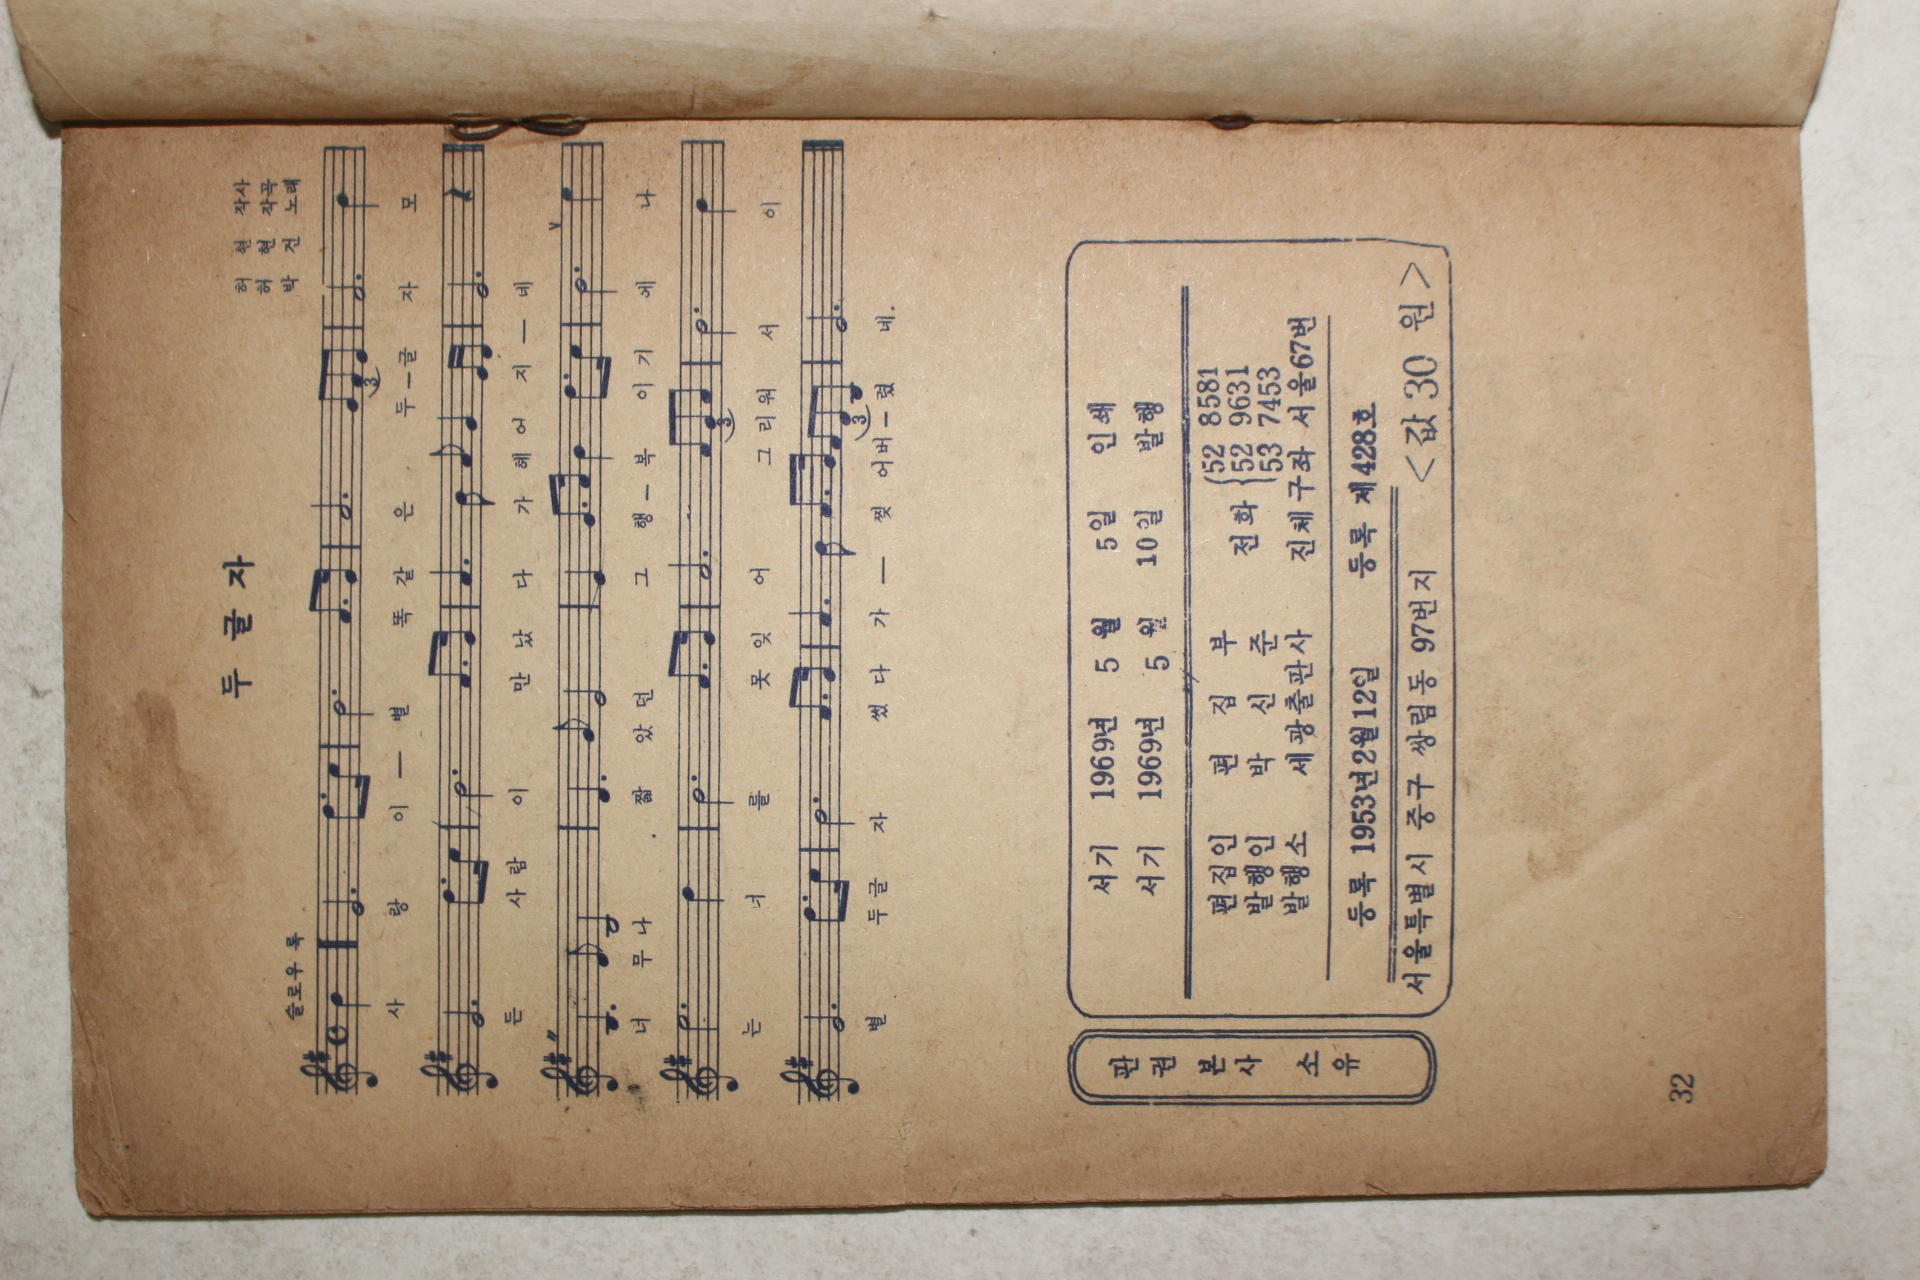 두 글 자
허 현 작사
허 현 작곡
박 건 노래
슬로우 록
사 랑 이 — 별 똑 같 은 두 – 글 자 모
든 사 람 이 만 났 다 가 헤 어 지 — 네
너 무 나 짧 았 던 그 행 – 복 이 기 에 나
는 너 를 못 잊 어 그 리 워 서 이
별 두 글 자 썼 다 가 — 찢 어 버 – 렸 네.
판권 본사 소유
서기 1969년 5월 5일 인쇄
서기 1969년 5월 10일 발행
편집인 편 집 부
발행인 박 신 준
발행소 세광출판사
전화 52 8581
52 9631
53 7453
진체구좌 서울67번
등록 1953년2월12일 등록 제428호
서울특별시 중구 쌍림동 97번지 <값 30 원>
32